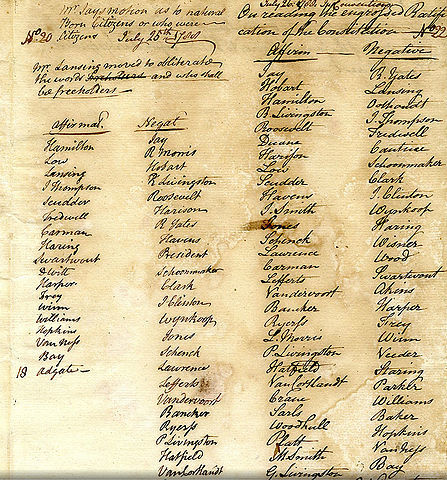 Mr Jays motion as to national
Born Citizens or who were
No. 30 Citizens July 25th 1788
Mr. Lansing moved to obliterate
the words freeholders and who shall
be freeholders —
affirmat. Negat
Hamilton
Low
Lansing
J Thompson
Scudder
Tredwell
Carman
Haring
Swartwout
DWitt
Harper
Frey
Winn
Williams
Hopkins
Van Ness
Bay
18 adgate —
Jay
R Morris
Hobart
R Livingston
Roosevelt
Harison
R Yates
Havens
President
Schoonmaker
Clark
J Clinton
Wynkoop
Jones
Schenck
Lawrence
Lefferts
Vandervoort
Bancker
Ryerss
P Livingston
Hatfield
Van Cortlandt
July 26. 1788.
On reading the engrossed Ratifi-
cation of the Constitution No. 32
Affirm Negative
Jay
Hobart
Hamilton
B. Livingston
Roosevelt
Duane
Harison
Low
Scudder
Havens
J. Smith
Jones
Schenck
Lawrence
Carman
Lefferts
Vandervoort
Bancker
Ryerss
L. Morris
P. Livingston
Hatfield
Van Cortlandt
Crane
Sarls
Woodhull
Platt
M Smith
G. Livingston
R. Yates
Lansing
Outhoudt
J. Thompson
Tredwell
Cantine
Schoonmaker
Clark
J. Clinton
Wynkoop
Haring
Wisner
Wood
Swartwout
Akins
Harper
Frey
Winn
Veeder
Staring
Parker
Williams
Baker
Hopkins
Van Ness
Bay